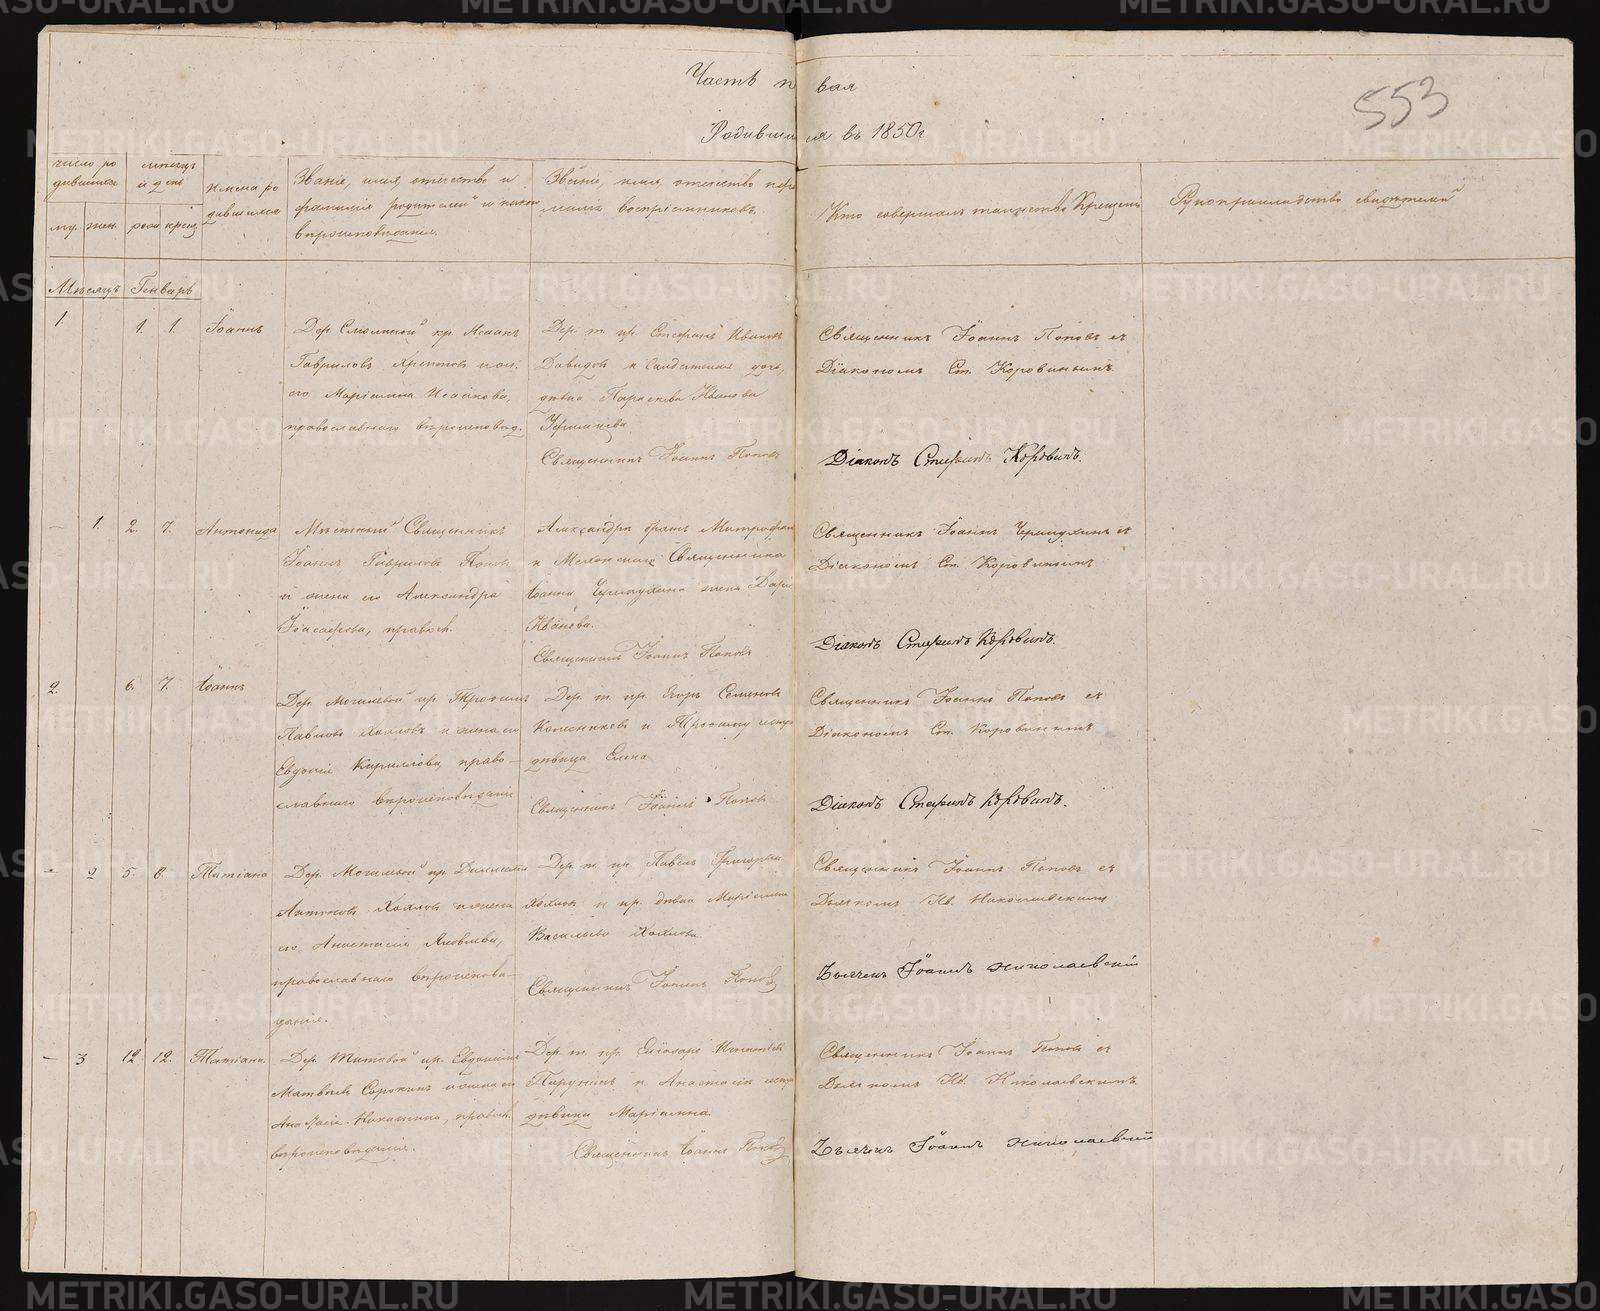 Часть п вая
553
Родивши ся въ 1850г
число ро
дившихся
мѣсяцъ
и день
Имена ро
дившихся
Званіе, имя, отечество и
фамилія родителей и какого
вѣроисповѣданія.
Званіе, имя, отечество и фа
милія воспріемниковъ.
Кто совершалъ таинство Крещенія
Рукоприкладство свидѣтелей
му. жен. роди крещ
Мѣсяцъ Генварь
1. 1. 1. Іоаннъ
Дер. Смолиной кр. Исаакъ
Гавриловъ
его Маріамна Исакова,
православнаго вѣроисповѣд.
Дер. т. кр. Стефанъ Ивановъ
Давидовъ и Солдатская дочь,
дѣвка Параскева Иванова
Священникъ Іоаннъ Поповъ
Священникъ Іоаннъ Поповъ съ
Діакономъ Ст. Коровинымъ.
Діаконъ Стефанъ Коровинъ.
— 1. 2. 7. Антонида
Мѣстный Священникъ
Іоаннъ Гавриловъ Поповъ
и жена его Александра
Іоасафова, правосл.
Александръ
и Мехонскаго Священника
Іоанна жена Дарія
Иванова.
Священникъ Іоаннъ Поповъ
Священникъ Іоаннъ съ
Діакономъ Ст. Коровинымъ
Діаконъ Стефанъ Коровинъ.
2. 6. 7. Іоаннъ
Дер. Могилевой кр. Трофимъ
Павловъ Хохловъ и жена его
Евдокія Кириллова, право-
славнаго вѣроисповѣданія
Дер. т. кр. Егоръ Семеновъ
Колесниковъ и Трофиму сестра
дѣвица Елена
Священникъ Іоаннъ Поповъ
Священникъ Іоаннъ Поповъ съ
Діакономъ Ст. Коровинымъ.
Діаконъ Стефанъ Коровинъ.
- 2 5. 8. Татіана
Дер. Могилевой кр.
Антоновъ Хохловъ и жена
его Анастасія Яковлева,
православнаго вѣроисповѣ-
данія.
Дер. т. кр. Павелъ Григорьевъ
Хохловъ и кр. дѣвка Маріамна
Васильева Хохлова.
Священникъ Іоаннъ Поповъ
Священникъ Іоаннъ Поповъ съ
Дьячкомъ Ив. Николаевскимъ
Дьячекъ Іоаннъ Николаевскій
— 3 12 12. Татіана.
Дер. Титовой кр. Евдокимъ
Матвѣевъ Сорокинъ и жена его
Анастасія Никитина, правосл.
вѣроисповѣданія.
Дер. т. кр.
и Анастасіи сестра
дѣвица Маріамна.
Священникъ Іоаннъ Поповъ
Священникъ Іоаннъ Поповъ съ
Дьячкомъ Ив. Николаевскимъ.
Дьячекъ Іоаннъ Николаевскій
METRIKI.GASO-URAL.RU